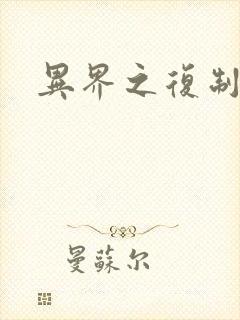 異界之復制
曼蘇尔